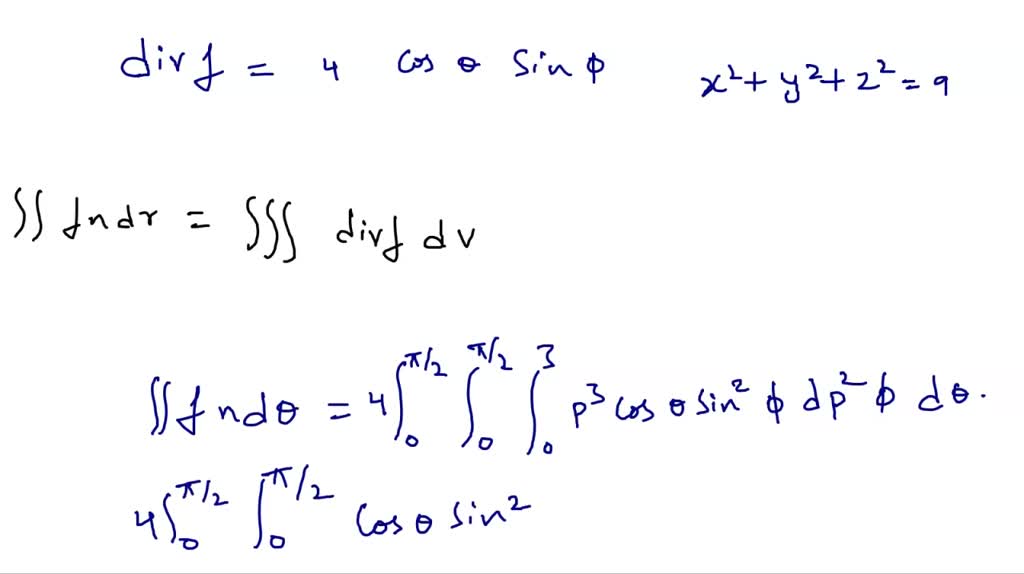 div f = 4 cos θ sin ϕ x²+y²+z²=9
∫∫ f n dr = ∫∫∫ div f dv
∫∫ f n dθ = 4 ∫₀^π/2 ∫₀^π/2 ∫₀^3 p³ cos θ sin² ϕ dp² ϕ dθ.
4 ∫₀^π/2 ∫₀^π/2 cos θ sin²